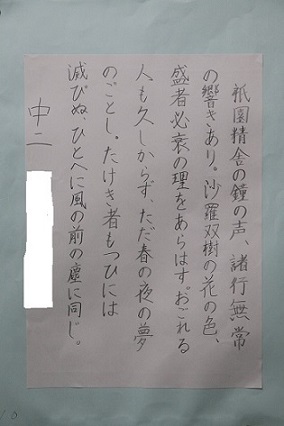 祇園精舎の鐘の声、諸行無常
の響きあり。沙羅双樹の花の色、
盛者必衰の理をあらはす。おごれる
人も久しからず、ただ春の夜の夢
のごとし。たけき者もつひには
滅びぬ、ひとへに風の前の塵に同じ。
中二